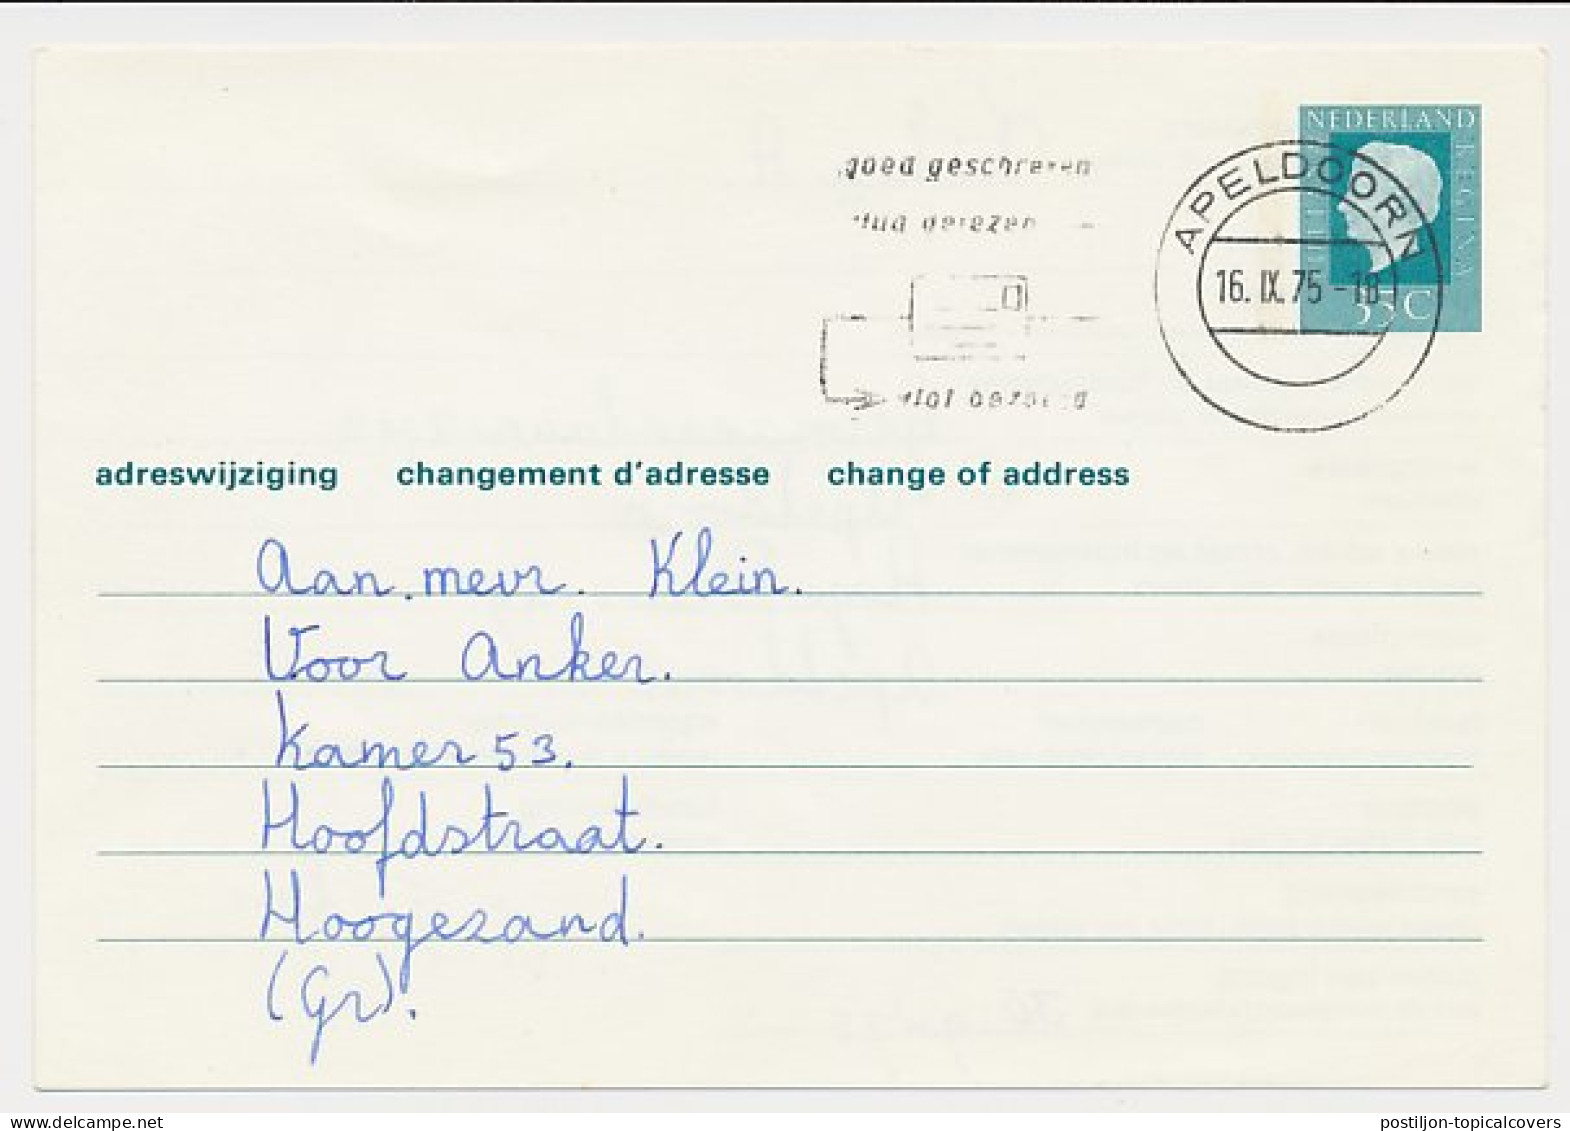 NEDERLAND
REGINA
APELDOORN
16. IX. 75 -18
C
goed geschreven
adreswijziging changement d'adresse change of address
Aan. mevr. Klein.
Voor Anker.
Kamer 53.
Hoofdstraat.
Hoogezand.
(Gr).
www.delcampe.net
postiljon-topicalcovers